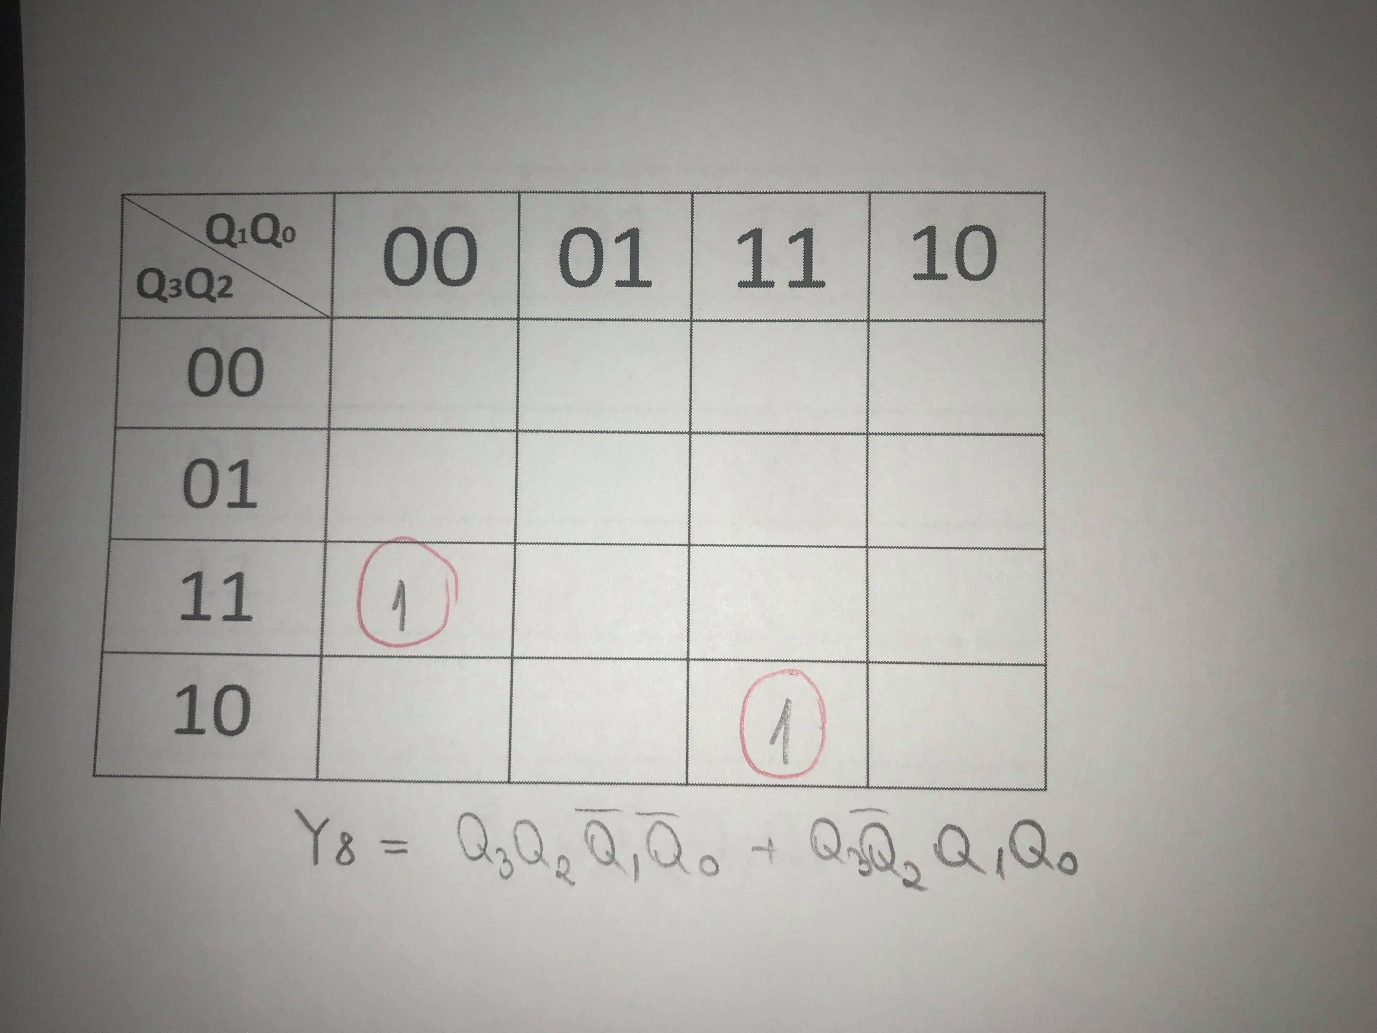 Q₁Q₀
Q₃Q₂
00 01 11 10
00
01
11 1
10 1
Y₈ = Q₃Q₂Q̅₁Q̅₀ + Q₃Q̅₂Q₁Q₀